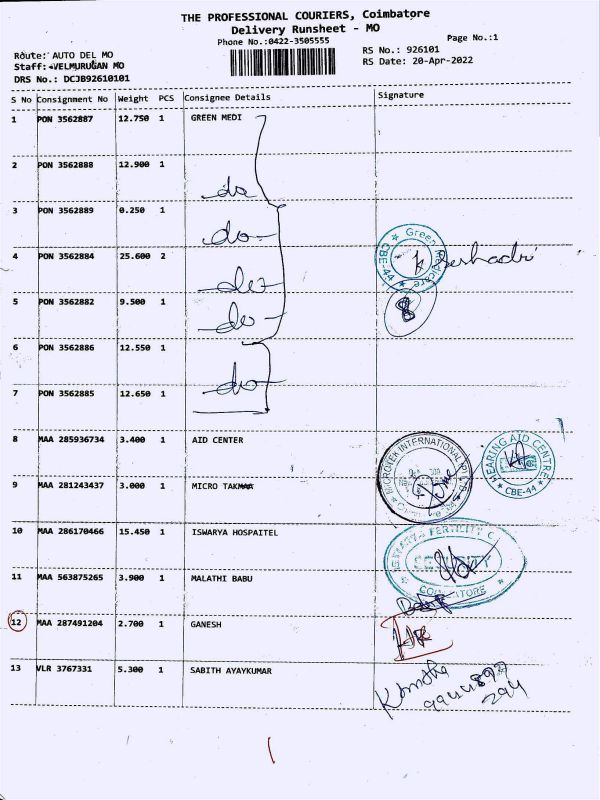 THE PROFESSIONAL COURIERS, Coimbatore
Delivery Runsheet - MO
Phone No.:0422-3505555
Page No.:1
Route: AUTO DEL MO
RS No.: 926101
Staff: VELMURUGAN MO
RS Date: 20-Apr-2022
DRS No.: DCJB92610101
S No Consignment No Weight PCS Consignee Details Signature
1 PON 3562887 12.750 1 GREEN MEDI
2 PON 3562888 12.900 1
do
3 PON 3562889 0.250 1
do-
Green Medicare
CBE-44
4 PON 3562884 25.600 2
Seshadri
do-
5 PON 3562882 9.500 1
8
do-
6 PON 3562886 12.550 1
do-
7 PON 3562885 12.650 1
8 MAA 285936734 3.400 1 AID CENTER
MICROTEK INTERNATIONAL
HEARING AID CENTRE
CBE-44
9 MAA 281243437 3.000 1 MICRO TAK
10 MAA 286170466 15.450 1 ISWARYA HOSPAITEL
FERTILITY
COIMBATORE
11 MAA 563875265 3.900 1 MALATHI BABU
12 MAA 287491204 2.700 1 GANESH
13 VLR 3767331 5.300 1 SABITH AYAYKUMAR
294